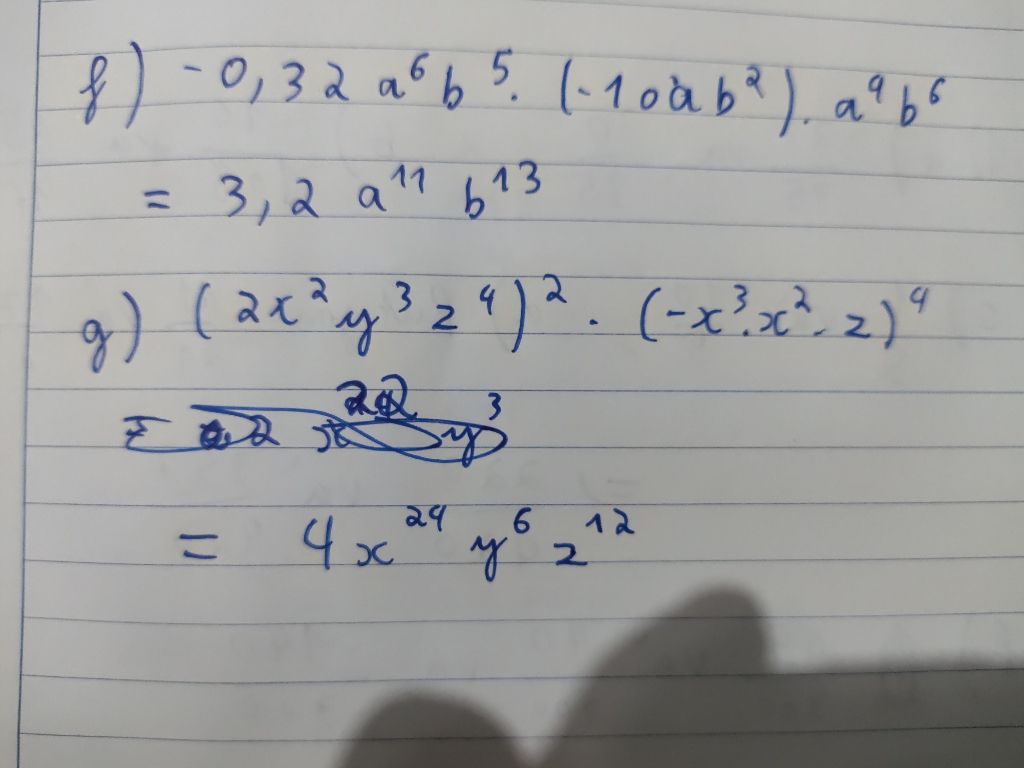 f) -0,32 a⁶ b⁵. (-10ab²). a⁴ b⁶
= 3,2 a¹¹ b¹³
g) (2x² y³ z⁴)² . (-x³.x².z)⁴
= 4x²⁴ y⁶ z¹²